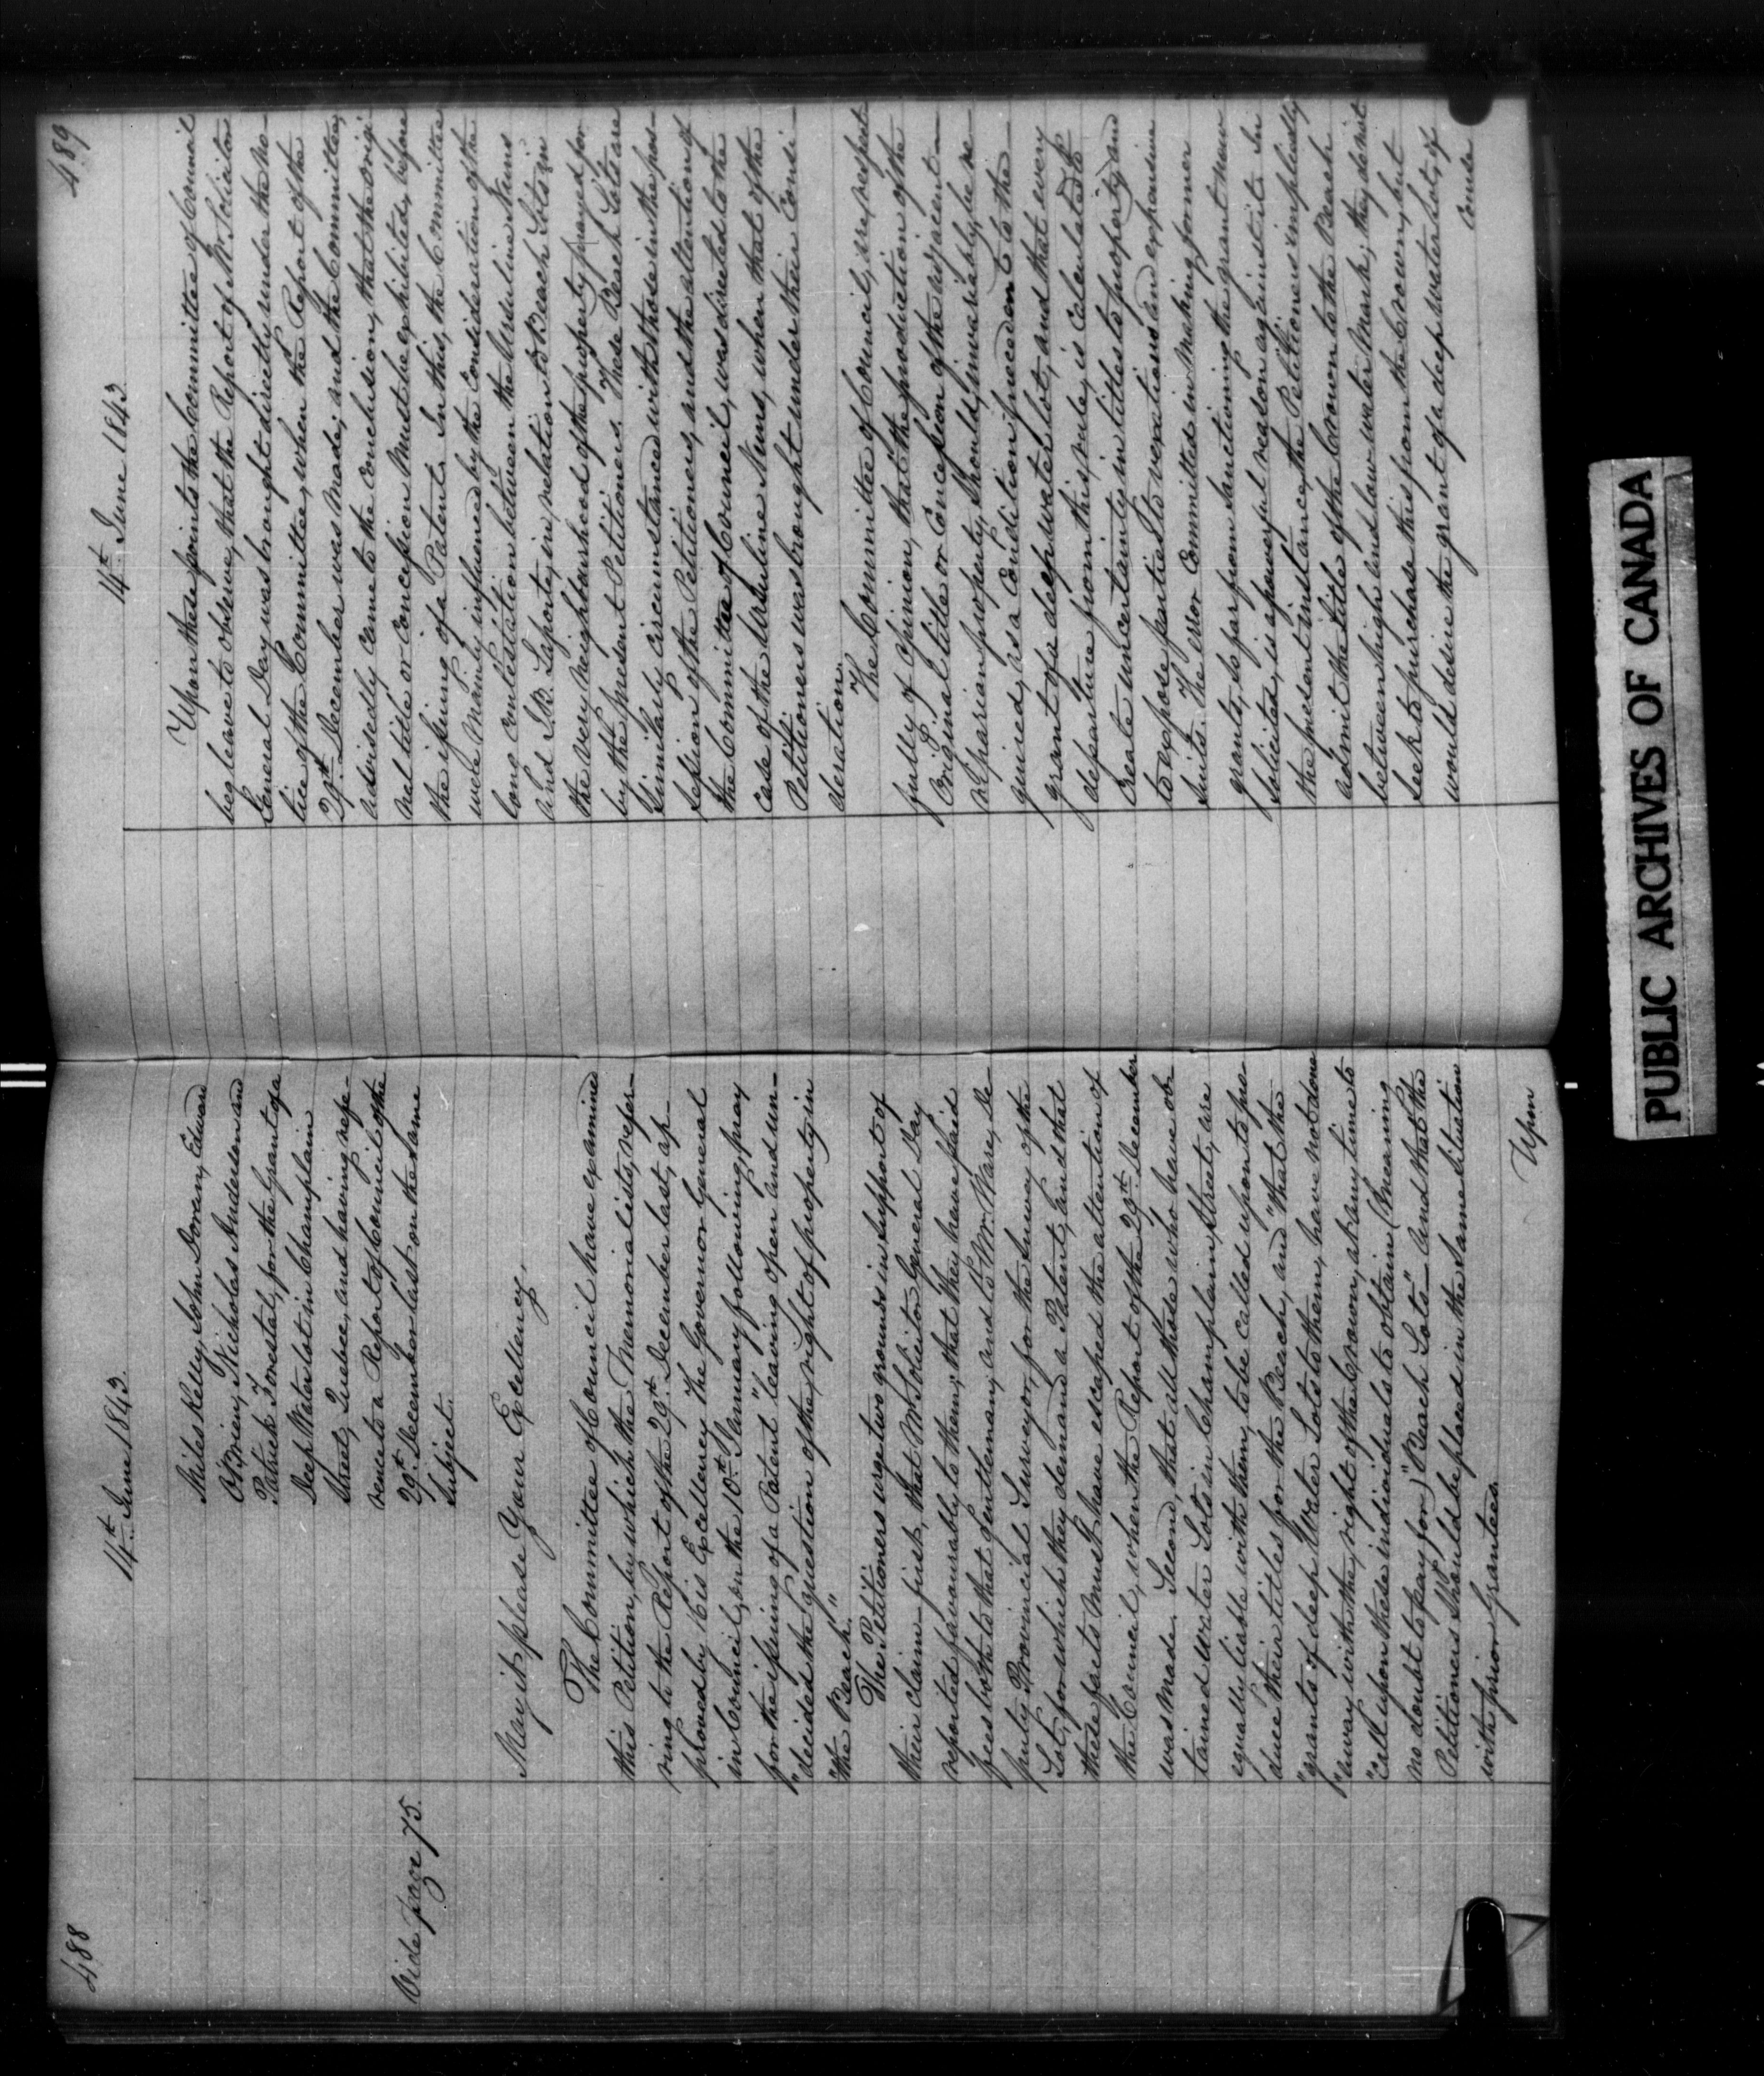 488
14th June 1843.
Miles Kelly, John Doran, Edward
O'Brien, Nicholas Anderson and
Patrick Forestal, for the Grant of a
Deep Water lot in Champlain
Street, Quebec, and having refe-
rence to a Report of Council of the
Vide page 75.
29th December last on the same
Subject.
May it please Your Excellency,
The Committee of Council have examined
this Petition, in which the Memorialists, refer-
ring to the Report of the 29th December last, ap-
proved by His Excellency The Governor General
in Council, on the 10th January following, pray
for the issuing of a Patent "leaving open and un-
"decided the question of the right of property in
"the Beach."
The Petitioners urge two grounds in support of
their claim – first, that Mr Solicitor General Day
reported favourably to them; that they have paid
fees both to that Gentleman, and to Mr. Ware, De-
puty Provincial Surveyor, for the Survey of the
Lot, for which they demand a Patent, and that
these facts must have escaped the attention of
the Council, when the Report of the 29th December
was made. Second, that all those who have ob-
tained Water Lots in Champlain Street, are
equally liable with them, to be called upon to pro-
duce their titles for the Beach, and "that the
"grants of deep Water Lots to them, have not done
"away with the right of the Crown, at any time to
"call upon these individuals to obtain (meaning
no doubt to pay for) "Beach Lots" and that the
Petitioners should be placed in the same situation
with prior Grantees.
Upon
489
14th June 1843.
Upon these points the Committee of Council
beg leave to observe, that the Report of Mr. Solicitor
General Day was brought directly under the no-
tice of the Committee, when the Report of the
29th December was made; and the Committee,
advisedly came to the conclusion, that the origi
nal title or concession must be exhibited, before
the issuing of a Patent. In this, the Committee
were mainly influenced by the consideration of the
long contestation between the Ursuline Nuns
and J. B. Laporte, in relation to Beach Lots in
the very neighbourhood of the property prayed for
by the present Petitioners. These Beach Lots are
similarly circumstanced with those in the pos-
session of the Petitioners, and the attention of
the Committee of Council, was directed to the
case of the Ursuline Nuns, when that of the
Petitioners was brought under their Consi-
deration.
The Committee of Council, are, respect
fully of opinion, that the production of the
Original title or Concession of the adjacent
riparian property, should, invariably, be re-
quired, as a Condition precedent to the
grant of a deep water lot, and that every
departure from this rule, is calculated to
create uncertainty in titles to property, and
to expose parties to vexations and expensive
suits. The error committed in making former
grants, so far from sanctioning the grant now
solicited, is a powerful reason against it. In
the present instance, the Petitioners impliedly
admit the title of the Crown to the Beach
between high and low water mark; they do not
seek to purchase this from the Crown, but
would desire the grant of a deep water lot, of
PUBLIC ARCHIVES OF CANADA